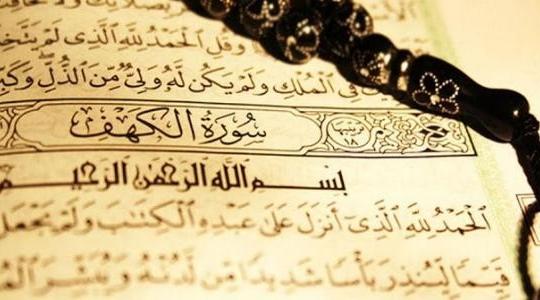 بِصَلَاتِكَ وَلَا
وَقُلِ ٱلْحَمْدُ لِلَّهِ ٱلَّذِى لَمْ يَتَّخِذْ
فِى ٱلْمُلْكِ وَلَمْ يَكُن لَّهُۥ وَلِىٌّ مِّنَ ٱلذُّلِّ
سُورَةُ الكَهْفِ
ترتيبها ١٨
بِسْمِ ٱللَّهِ ٱلرَّحْمَٰنِ ٱلرَّحِيمِ
ٱلْحَمْدُ لِلَّهِ ٱلَّذِىٓ أَنزَلَ عَلَىٰ عَبْدِهِ ٱلْكِتَٰبَ وَلَمْ يَجْعَل
قَيِّمًا لِّيُنذِرَ بَأْسًا شَدِيدًا مِّن لَّدُنْهُ وَيُبَشِّرَ